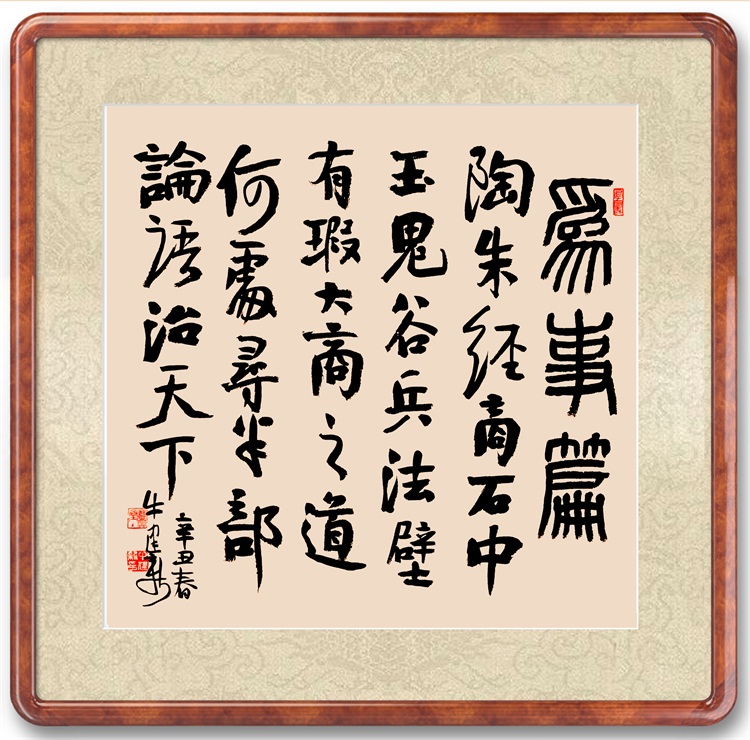 爲事篇
陶朱經商石中
玉鬼谷兵法壁
有瑕大商之道
何處尋半部
論語治天下
辛丑春
牛